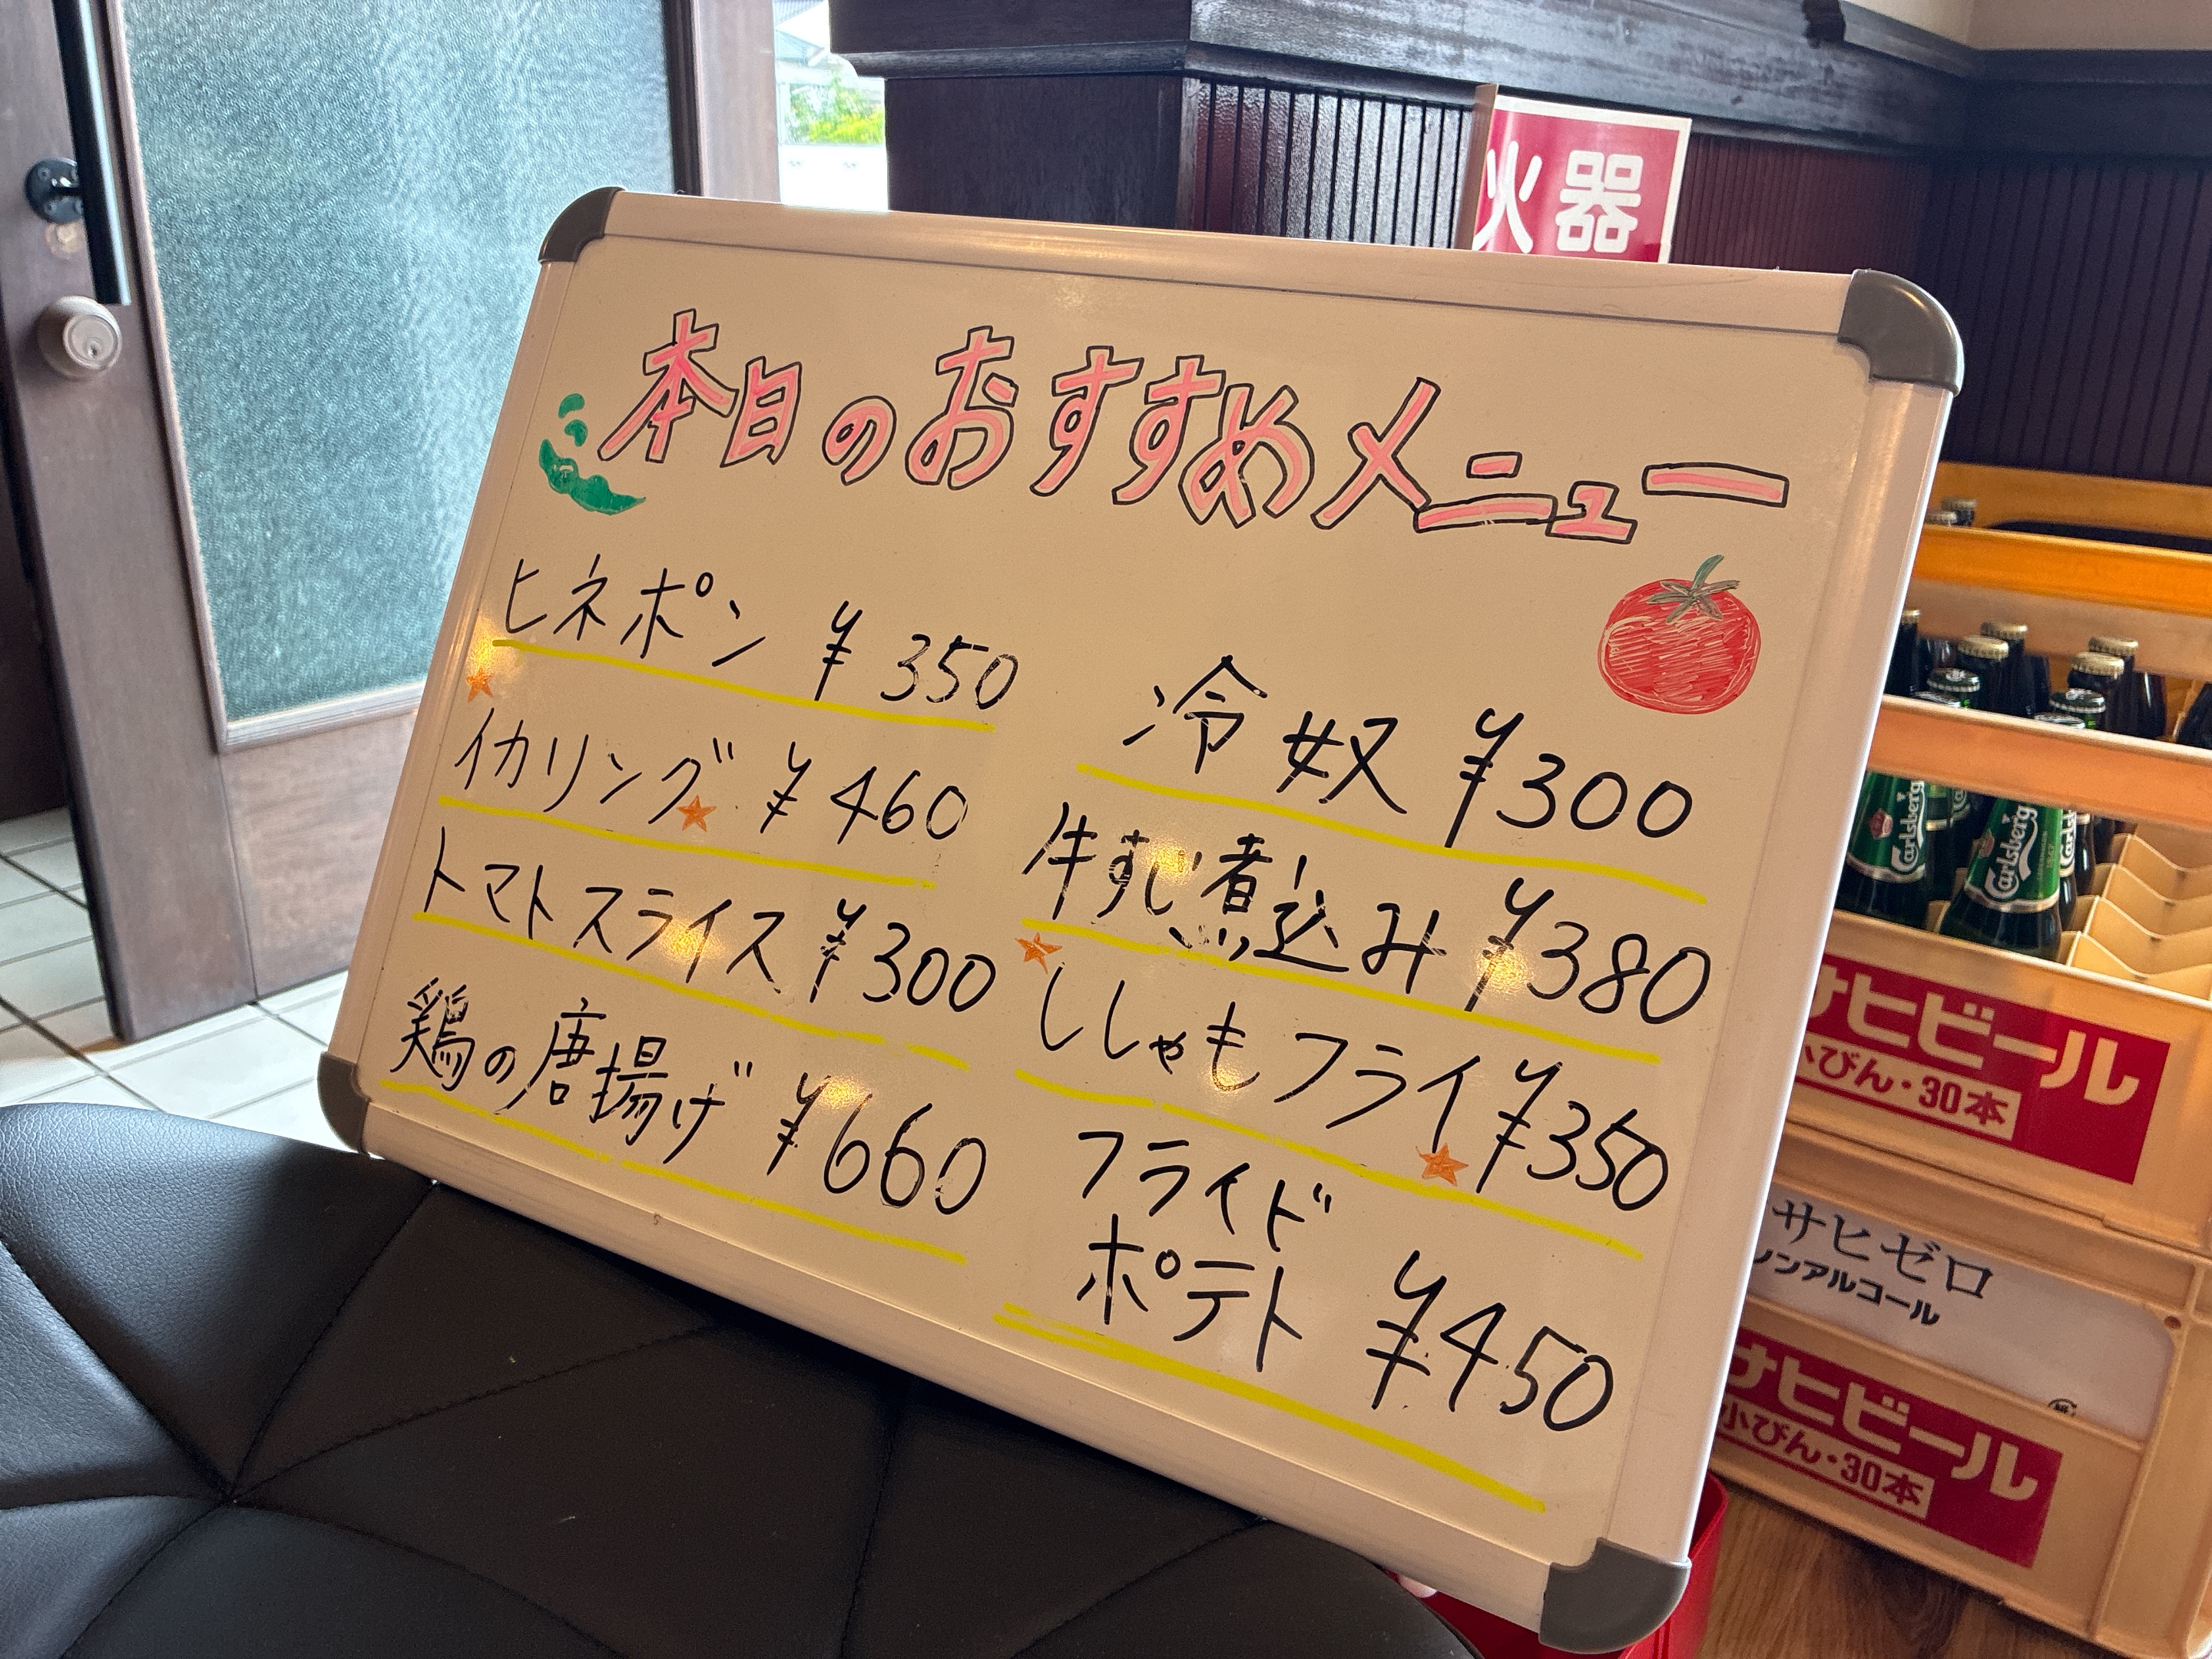 火器
本日のおすすめメニュー
ヒネポン ¥350
イカリング ¥460
トマトスライス ¥300
鶏の唐揚げ ¥660
冷奴 ¥300
牛すじ煮込み ¥380
ししゃもフライ ¥350
フライド
ポテト ¥450
Carlsberg
Carlsberg
サヒビール
小びん・30本
サヒゼロ
ノンアルコール
サヒビール
小びん・30本